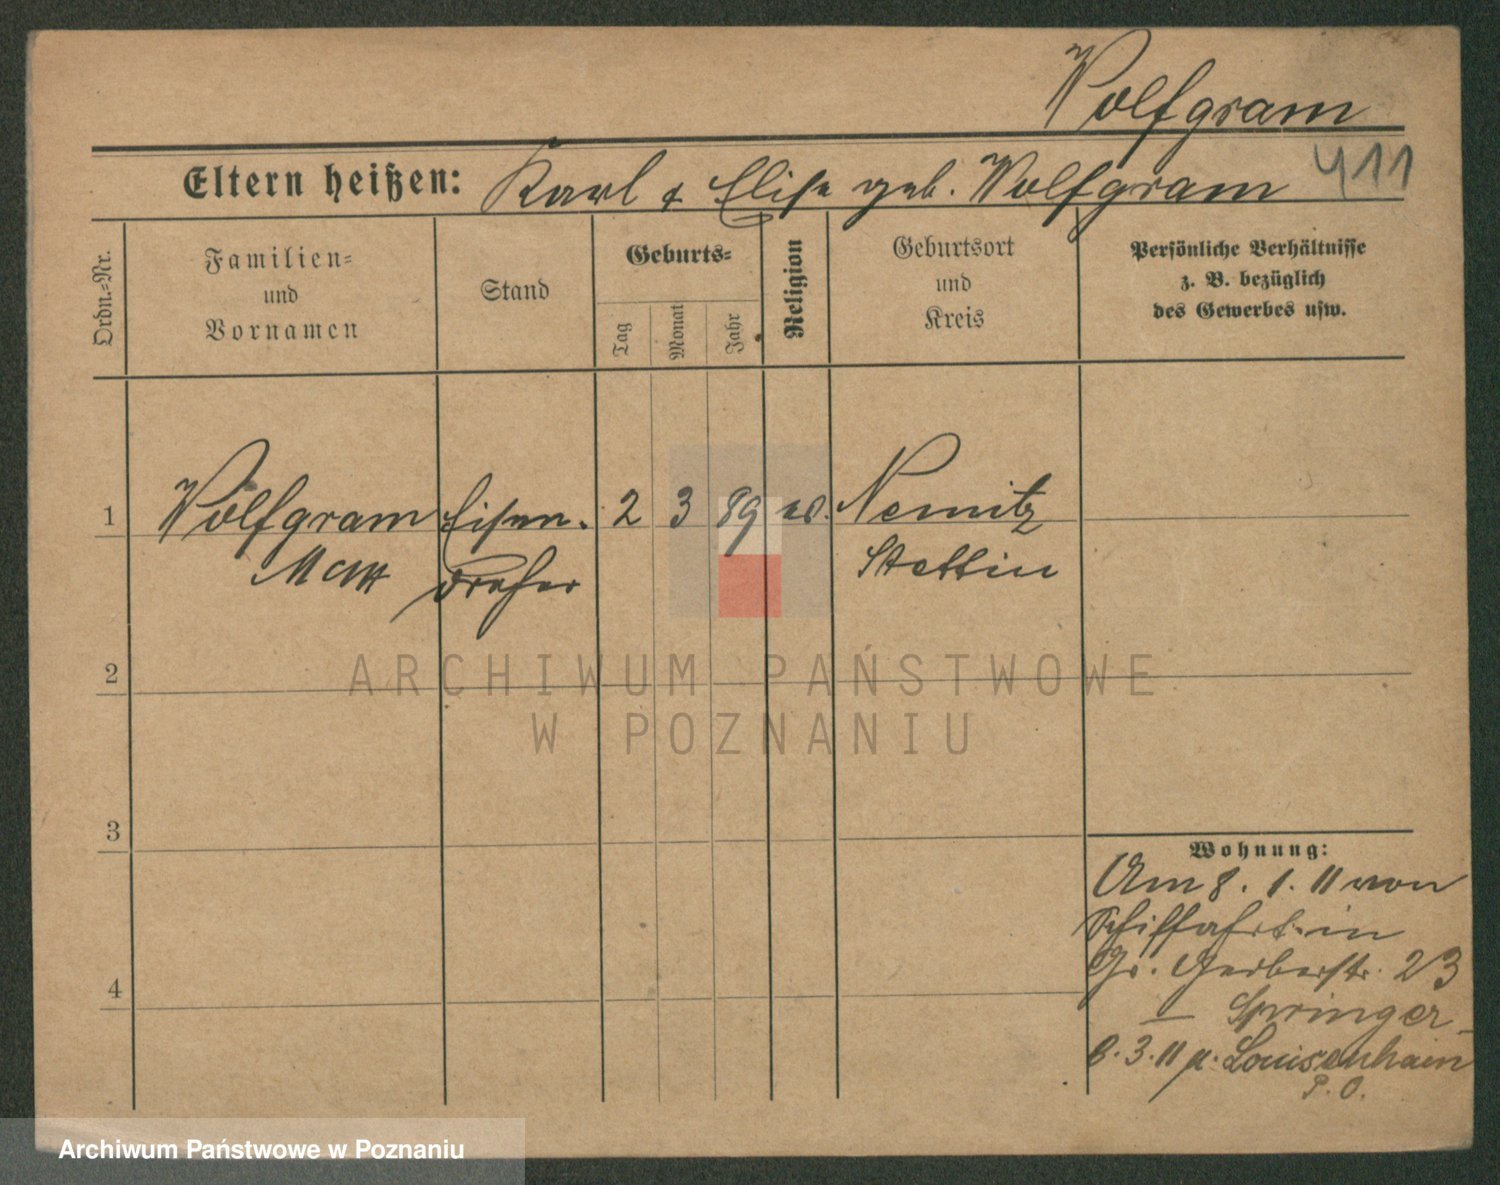 Wolfgram
Eltern heißen: Karl & Elise geb. Wolfgram 411
Ordn.-Nr.
Familien-
und
Vornamen
Stand
Geburts-
Tag
Monat
Jahr
Religion
Geburtsort
und
Kreis
Persönliche Verhältnisse
z. B. bezüglich
des Gewerbes usw.
1 Wolfgram Eisen- 2 3 89 Nemitz
Max dreher Stettin
2
3
4
Wohnung:
Am 8. 1. 11 von
Schiffahrt in
Gr. Gerberstr. 23
— Springer —
8. 3. 11 n. Louisenhain
P. O.
ARCHIWUM PAŃSTWOWE
W POZNANIU
Archiwum Państwowe w Poznaniu